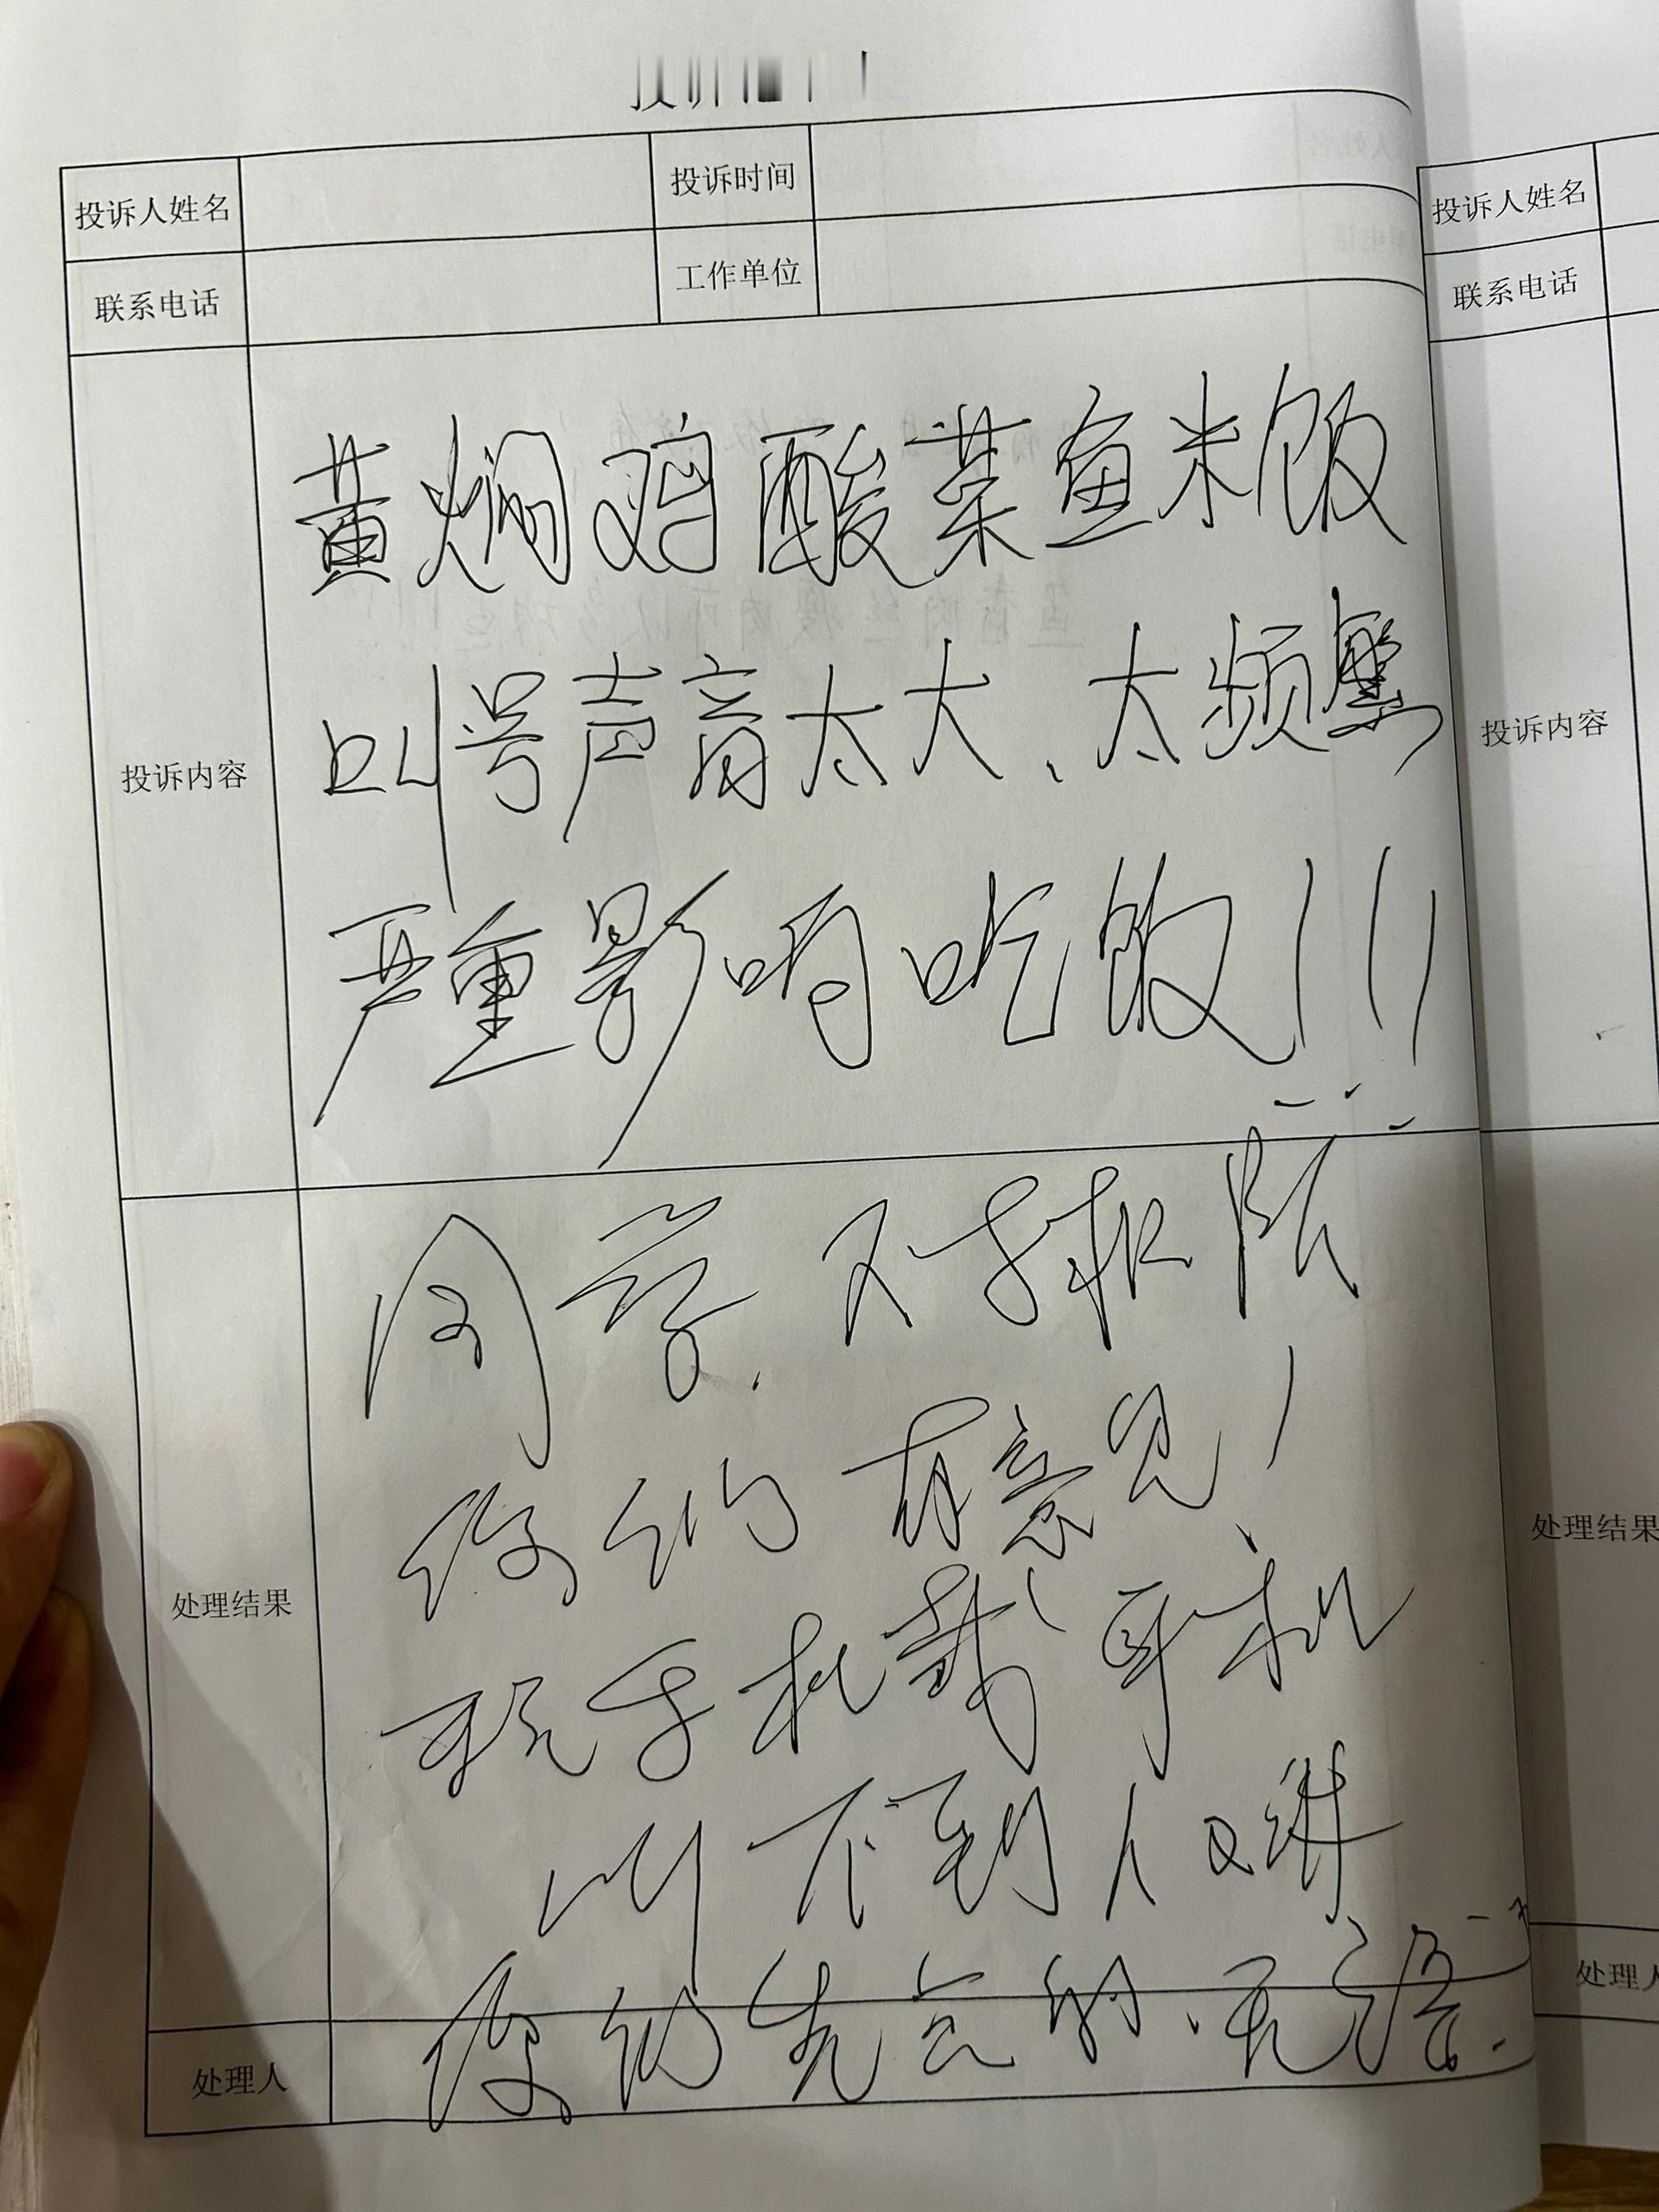 投诉
投诉人姓名 投诉时间
联系电话 工作单位
投诉内容
黄焖鸡酸菜鱼米饭
叫号声音太大、太频繁
严重影响吃饭!!!
处理结果
同学,对
你们有意见!
玩手机戴耳机
叫不到人又讲
你们先点的、无语
处理人
投诉人姓名
联系电话
投诉内容
处理结果
处理人